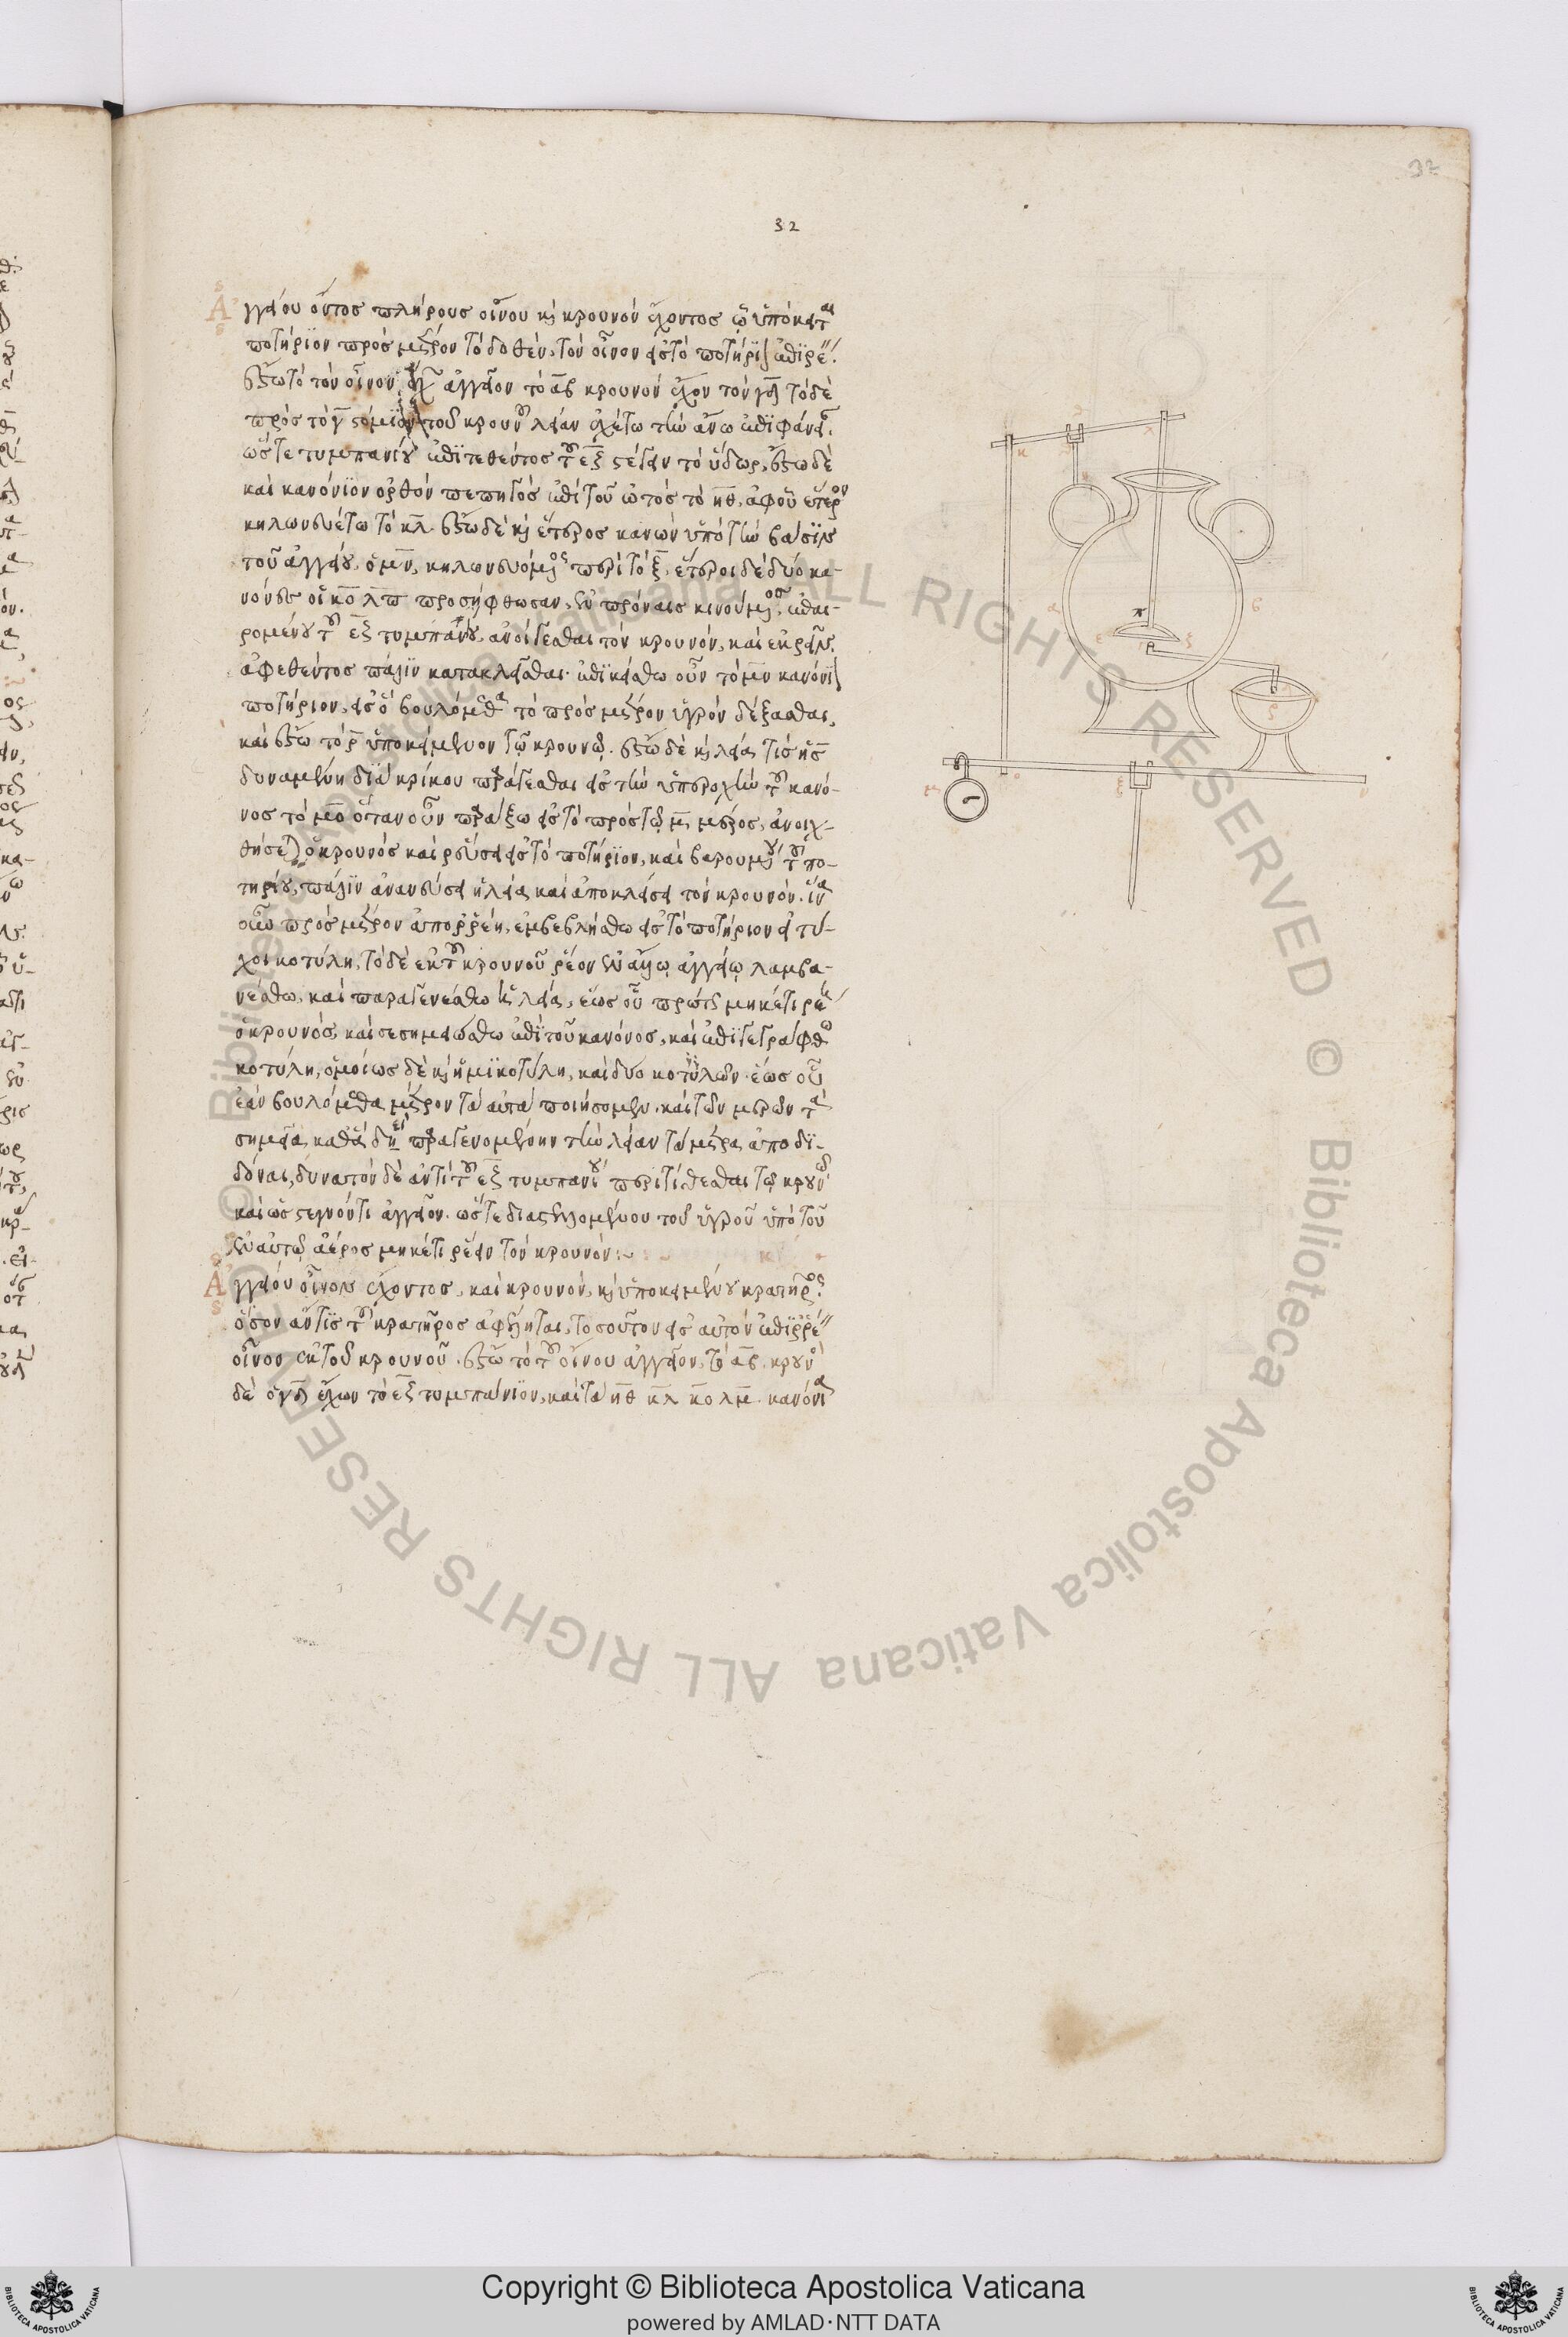 32
32
Ἀγγείου ὄντος πλήρους οἴνου κ̀ κρουνὸν ἔχοντος ᾧ ὑπόκειται
ποτήριον πρὸς μέτρον τὸ δοθὲν, τὸν οἶνον εἰς τὸ ποτήριον
ἔστω τὸ τὸν οἶνον ἀγγεῖον τὸ α̅β̅ κρουνὸν ἔχον τὸν γ̅δ̅ τὸ δὲ
πρὸς τὸ γ̅ στόμιον τοῦ κρουνοῦ λείαν ἐχέτω τὴν ἄνω ἐπιφάνειαν
ὥστε τυμπανίου ἐπιτεθέντος τοῦ ε̅ξ̅ στέγειν τὸ ὕδωρ, ἔστω δὲ
καὶ κανόνιον ὀρθὸν πεπηγὸς ἐπὶ τοῦ ὠτὸς τὸ η̅θ̅, ἀφ' οὗ ἕτερον
κηλωνευέτω τὸ κ̅λ̅. ἔστω δὲ κ̀ ἕτερος κανὼν ὑπὸ τὴν βάσιν
τοῦ ἀγγείου, ὁ μ̅ν̅, κηλωνευόμενος περὶ τὸ ξ̅, ἕτεροι δὲ δύο κα-
νόνες οἱ κ̅ο̅ λ̅π̅ προσήφθωσαν, ἐν περόναις κινούμενοι, ἐπαι-
ρομένου τοῦ ε̅ξ̅ τυμπανίου, ἀνοίγεσθαι τὸν κρουνὸν, καὶ ἐκρεῖν.
ἀφεθέντος πάλιν κατακλείεσθαι. ἐπικείσθω οὖν τὸ μ̅ν̅ κανόνιον
ποτήριον, εἰς ὃ βουλόμεθα τὸ πρὸς μέτρον ὑγρὸν δέξασθαι,
καὶ ἔστω τὸ ρ̅ ὑποκείμενον τῷ κρουνῷ. ἔστω δὲ κ̀ λεία τις ἡ σ̅
δυναμένη διὰ κρίκου παράγεσθαι εἰς τὴν ὑπεροχὴν τοῦ κανό-
νος τὸ μ̅ο̅ ὅταν οὖν παράξω εἰς τὸ πρὸς τῷ μ̅ μέρος, ἀνοιχ-
θήσεται ὁ κρουνὸς καὶ ῥεύσει εἰς τὸ ποτήριον, καὶ βαρουμένου τοῦ πο-
τηρίου, πάλιν ἀνανεύσει ἡ λεία καὶ ἀποκλείσει τὸν κρουνὸν. ἵνα
οὖν πρὸς μέτρον ἀπορρέῃ, ἐμβεβλήσθω εἰς τὸ ποτήριον εἰ τύ-
χοι κοτύλη, τὸ δὲ ἐκ τοῦ κρουνοῦ ῥέον ἐν ἄλλῳ ἀγγείῳ λαμβα-
νέσθω, καὶ παραγενέσθω ἡ λεία, ἕως οὗ πρῶτον μηκέτι ῥέῃ
ὁ κρουνὸς, καὶ σεσημειώσθω ἐπὶ τοῦ κανόνος, καὶ ἐπιγεγράφθω
κοτύλη, ὁμοίως δὲ κ̀ ἡμικοτύλη, καὶ δύο κοτυλῶν. ἕως οὗ
ἐὰν βουλόμεθα μέτρον τὰ αὐτὰ ποιήσομεν. καὶ τῶν μερῶν τὰ
σημεῖα, καθὰ δεῖ παραγενομένην τὴν λείαν τὰ μέτρα ἀποδι-
δόναι, δυνατὸν δὲ ἀντὶ τοῦ ε̅ξ̅ τυμπανίου περιτίθεσθαι τῷ κρουνῷ
καὶ ὡς στεγνοῦν τι ἀγγεῖον. ὥστε διαστελλομένου τοῦ ὑγροῦ ὑπὸ τοῦ
ἐν αὐτῷ ἀέρος μηκέτι ῥεῖν τὸν κρουνόν:~
Ἀγγείου οἶνον ἔχοντος, καὶ κρουνὸν, κ̀ ὑποκειμένου κρατῆρος
ὅσον ἄν τις τοῦ κρατῆρος ἀφέληται, τοσοῦτον εἰς αὐτὸν ἐπιρρέει
οἶνος ἐκ τοῦ κρουνοῦ. ἔστω τὸ τοῦ οἴνου ἀγγεῖον, τὸ α̅β̅. κρουνὸς
δὲ ὁ γ̅δ̅ ἔχων τὸ ε̅ξ̅ τυμπάνιον, καὶ τὰ η̅θ̅ κ̅λ̅ κ̅ο̅ λ̅μ̅. κανόνια
Copyright © Biblioteca Apostolica Vaticana
powered by AMLAD·NTT DATA